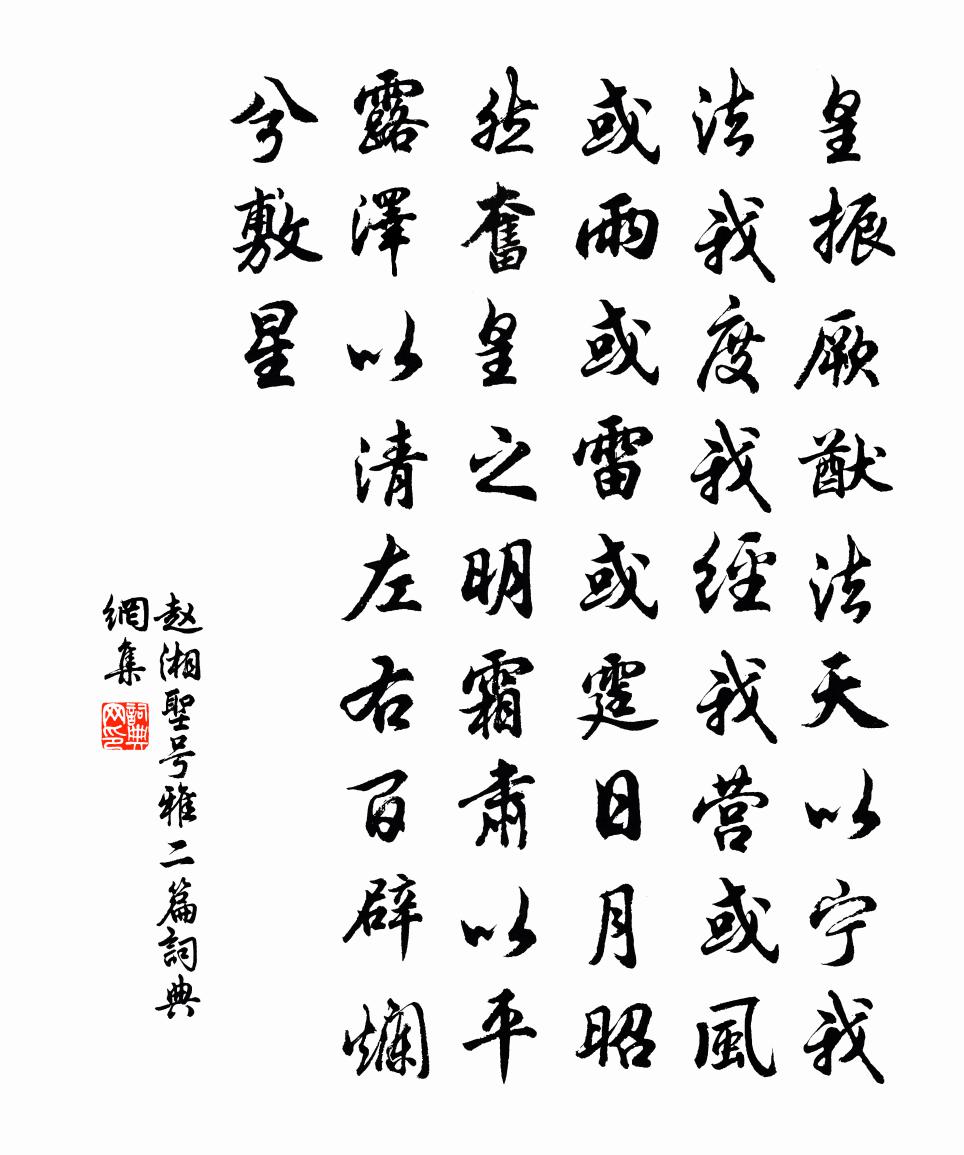 皇振厥猷法天以宁我
法我度我經我营或風
或雨或雷或霆日月昭
然奮皇之明霜肅以平
露澤以清左右百辟爛
兮敷星
赵湘聖号雅二篇詞典
網集
詞典网印